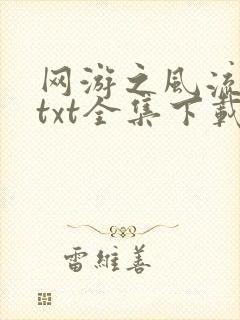 网游之风流
txt全集下载
雷维善